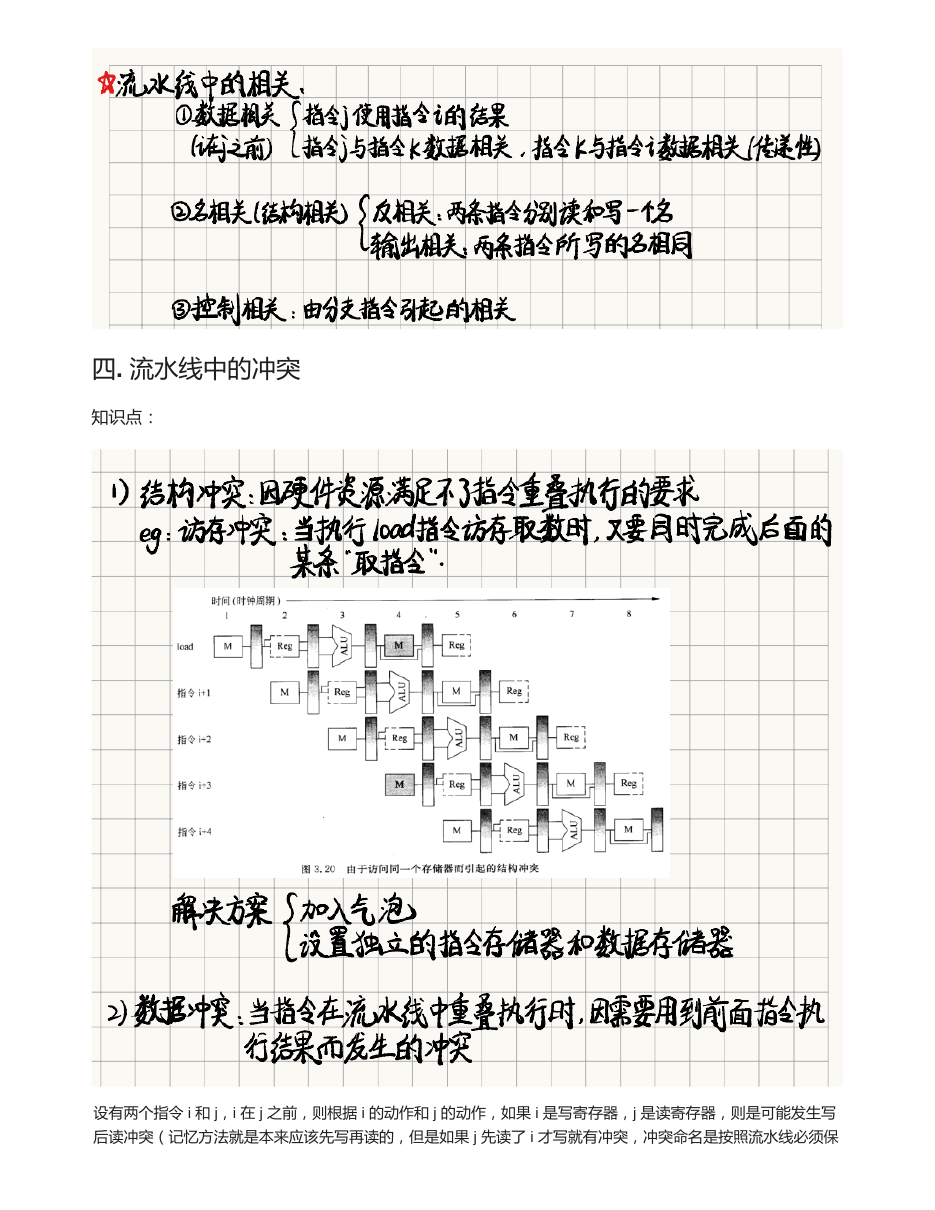 ☆流水线中的相关、
①数据相关 { 指令j使用指令i的结果
(i在j之前) 指令j与指令k数据相关,指令k与指令i数据相关(传递性)
②名相关(结构相关) { 反相关:两条指令分别读和写一个名
输出相关:两条指令所写的名相同
③控制相关:由分支指令引起的相关
四. 流水线中的冲突
知识点:
1) 结构冲突:因硬件资源满足不了指令重叠执行的要求
eg:访存冲突:当执行load指令访存取数时,又要同时完成后面的
某条“取指令”.
时间(时钟周期)
1 2 3 4 5 6 7 8
load M Reg ALU M Reg
指令 i+1 M Reg ALU M Reg
指令 i+2 M Reg ALU M Reg
指令 i+3 M Reg ALU M Reg
指令 i+4 M Reg ALU M
图 3.20 由于访问同一个存储器而引起的结构冲突
解决方案 { 加入气泡
设置独立的指令存储器和数据存储器
2) 数据冲突:当指令在流水线中重叠执行时,因需要用到前面指令执
行结果而发生的冲突
设有两个指令 i 和 j,i 在 j 之前,则根据 i 的动作和 j 的动作,如果 i 是写寄存器,j 是读寄存器,则是可能发生写
后读冲突(记忆方法就是本来应该先写再读的,但是如果 j 先读了 i 才写就有冲突,冲突命名是按照流水线必须保